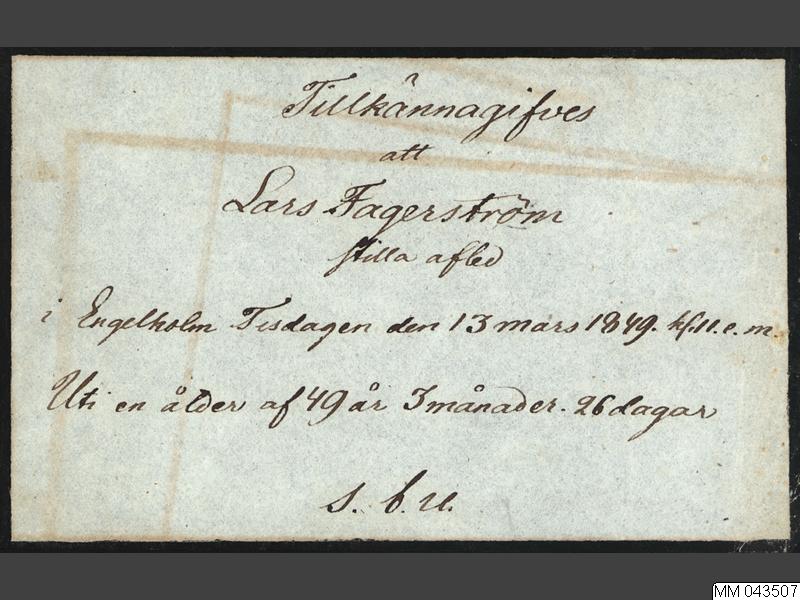 Tillkännagifves
att
Lars Fagerström
stilla afled
i Engelholm Tisdagen den 13 mars 1849. kl. 11. e. m.
Uti en ålder af 49 år 3 månader. 26 dagar
s. b. u.
MM 043507